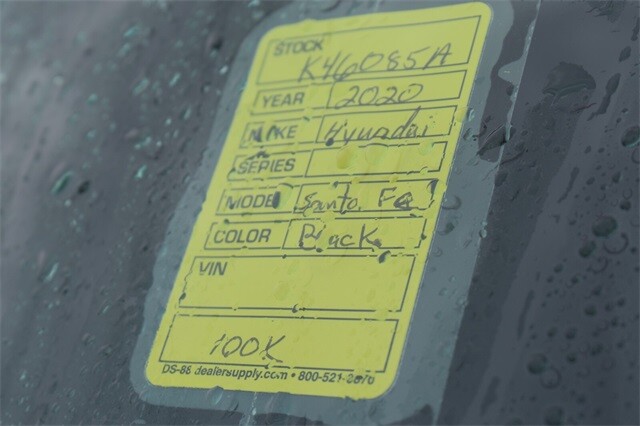 STOCK
K46085A
YEAR 2020
MAKE Hyundai
SERIES
MODEL Santa Fe
COLOR Black
VIN
100K
DS-88 dealersupply.com • 800-521-